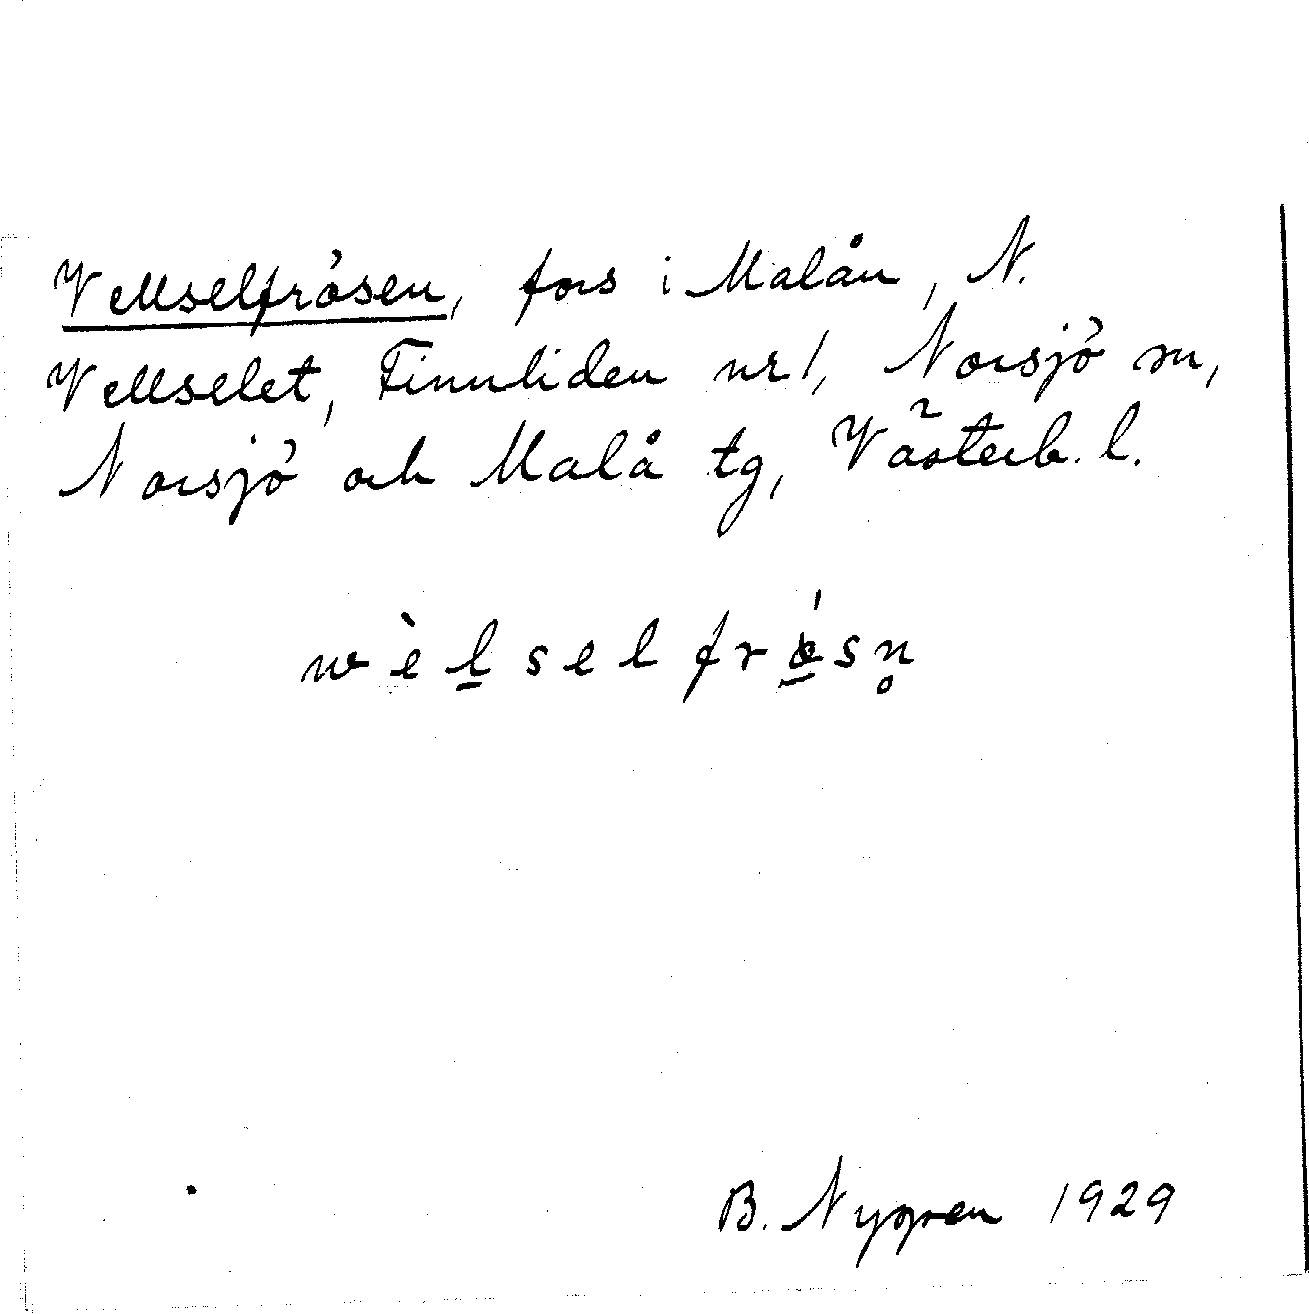 Vellselfrösen, fors i Malån, N.
Vellselet, Finnliden nr 1, Norsjö sn,
Norsjö och Malå tg, Västerb. l.
B. Nygren 1929